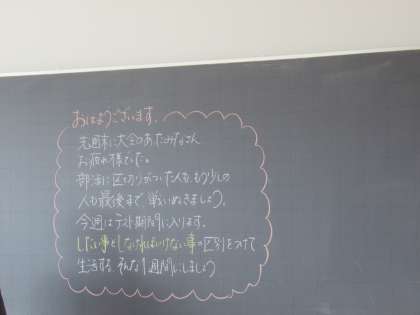 おはようございます。
先週末に大会のあったみなさん
お疲れ様でした。
部活に区切りがついた人も、もう少しの
人も最後まで戦いぬきましょう。
今週はテスト期間に入ります。
したい事としなければいけない事の区別をつけて
生活する、そんな1週間にしましょう